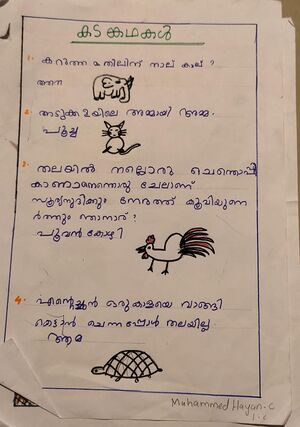 കടങ്കഥകൾ
1. കറുത്ത മതിലിന് നാല് കാല് ?
ആന
2. അടുക്കളയിലെ അമ്മായി അമ്മ.
പൂച്ച
3. തലയിൽ നല്ലൊരു ചെന്തൊപ്പി
കാണാനെന്തൊരു ചേലാണ്
സൂര്യനുദിക്കും നേരത്ത് കൂവിയുണ
ർത്തും ഞാനാര് ?
പൂവൻ കോഴി
4. എന്റെച്ഛൻ ഒരുകാളയെ വാങ്ങി
കെട്ടാൻ ചെന്നപ്പോൾ തലയില്ല
ആമ
Muhammed Hayan.C
1.C